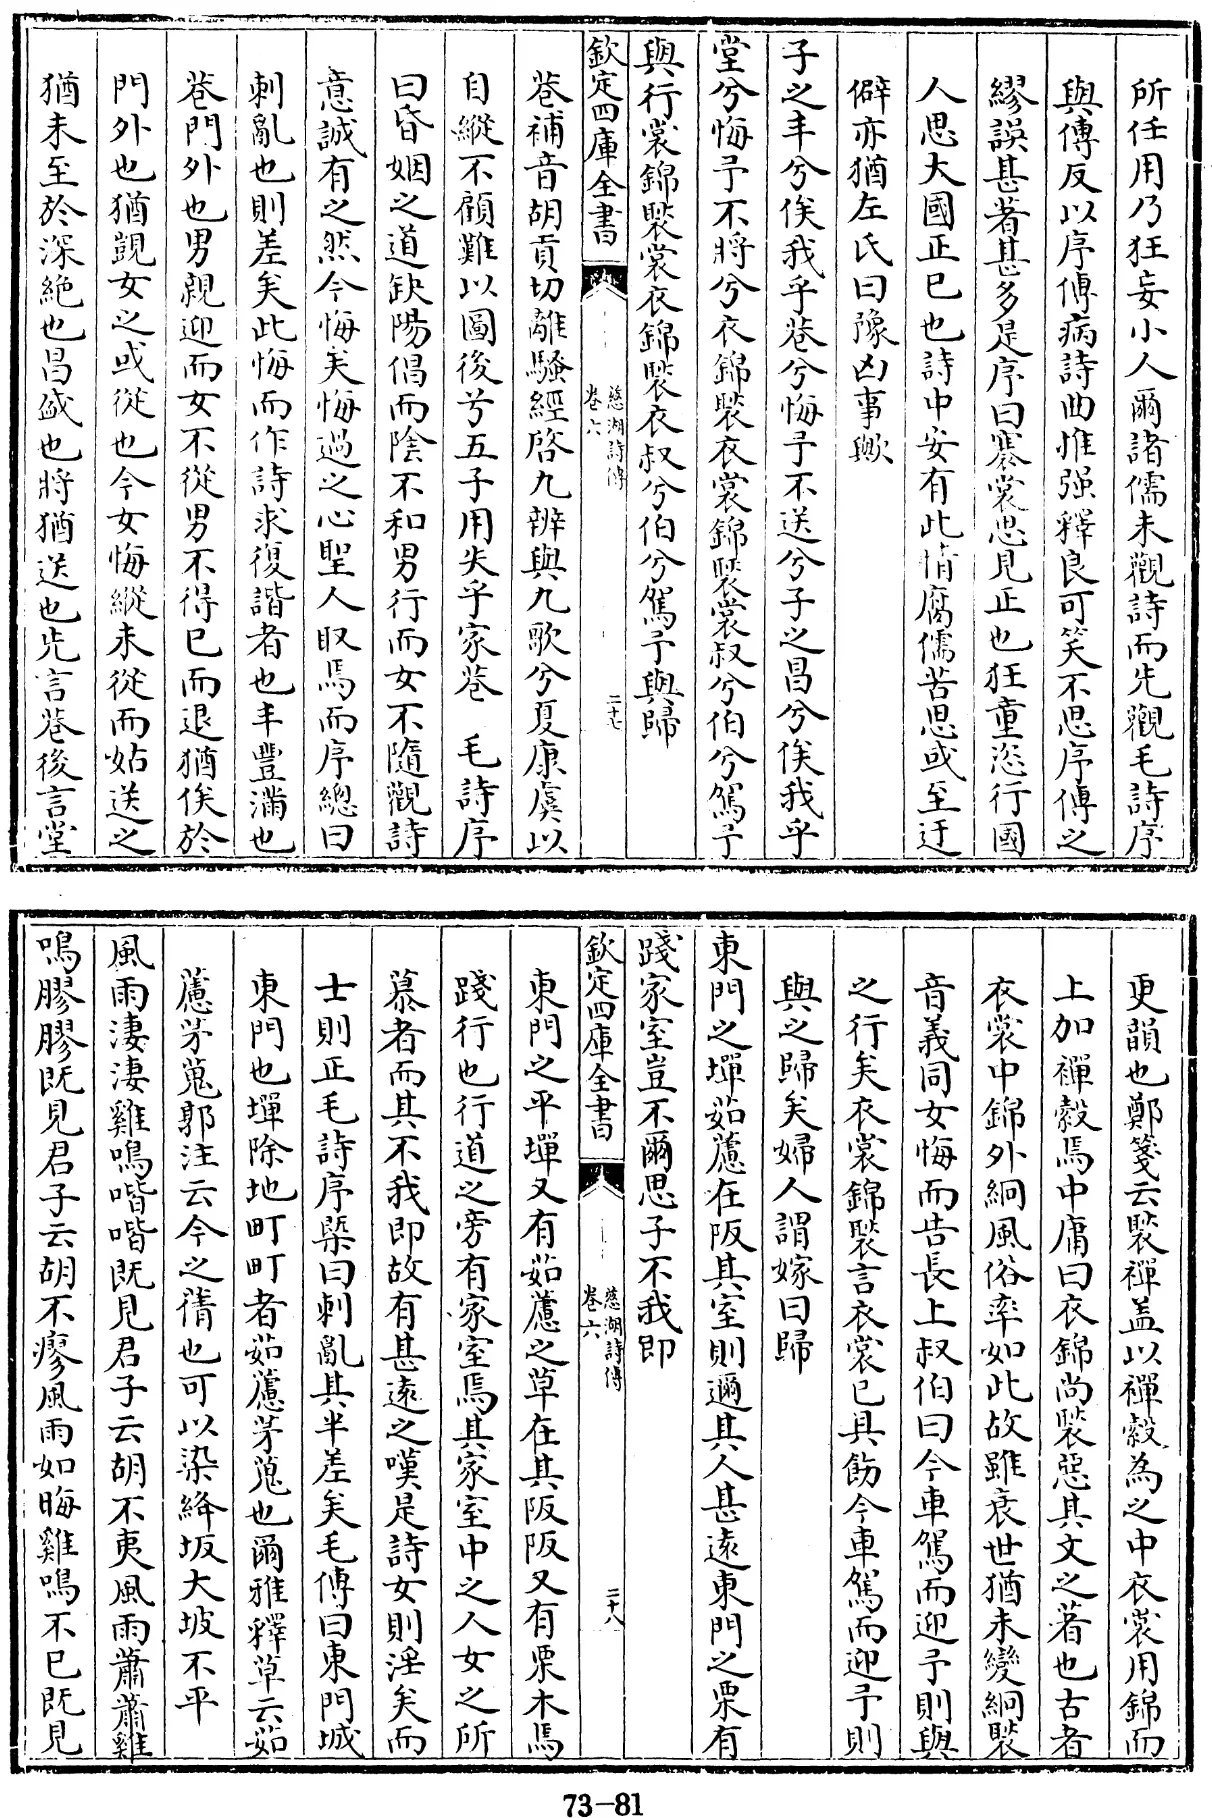 所任用乃狂妄小人爾諸儒未觀詩而先觀毛詩序
與傳反以序傳病詩曲推强釋良可笑不思序傳之
繆誤甚著甚多是序曰褰裳思見正也狂童恣行國
人思大國正已也詩中安有此情腐儒苦思或至迂
僻亦猶左氏曰豫凶事歟
子之丰兮俟我乎巷兮悔予不送兮子之昌兮俟我乎
堂兮悔予不將兮衣錦褧衣裳錦褧裳叔兮伯兮駕予
與行裳錦褧裳衣錦褧衣叔兮伯兮駕予與歸
欽定四庫全書
慈湖詩傳
卷六
二十七
巷補音胡貢切離騷經啓九辨與九歌兮夏康虞以
自縱不顧難以圖後兮五子用失乎家巷 毛詩序
曰昏姻之道缺陽倡而陰不和男行而女不隨觀詩
意誠有之然今悔矣悔過之心聖人取焉而序總曰
刺亂也則差矣此悔而作詩求復諧者也丰豐滿也
巷門外也男親迎而女不從男不得已而退猶俟於
門外也猶覬女之或從也今女悔縱未從而姑送之
猶未至於深絶也昌盛也將猶送也先言巷後言堂
更韻也鄭箋云褧禪盖以禪縠為之中衣裳用錦而
上加禪縠焉中庸曰衣錦尚褧惡其文之著也古者
衣裳中錦外絅風俗率如此故雖衰世猶未變絅褧
音義同女悔而告長上叔伯曰今車駕而迎予則與
之行矣衣裳錦褧言衣裳已具飭今車駕而迎予則
與之歸矣婦人謂嫁曰歸
東門之墠茹藘在阪其室則邇其人甚遠東門之栗有
踐家室豈不爾思子不我即
欽定四庫全書
慈湖詩傳
卷六
二十八
東門之平墠又有茹藘之草在其阪阪又有栗木焉
踐行也行道之旁有家室焉其家室中之人女之所
慕者而其不我即故有甚遠之嘆是詩女則淫矣而
士則正毛詩序槩曰刺亂其半差矣毛傳曰東門城
東門也墠除地町町者茹藘茅蒐也爾雅釋草云茹
藘茅蒐郭注云今之蒨也可以染絳坂大坡不平
風雨淒淒雞鳴喈喈既見君子云胡不夷風雨蕭蕭雞
鳴膠膠既見君子云胡不瘳風雨如晦雞鳴不已既見
73-81